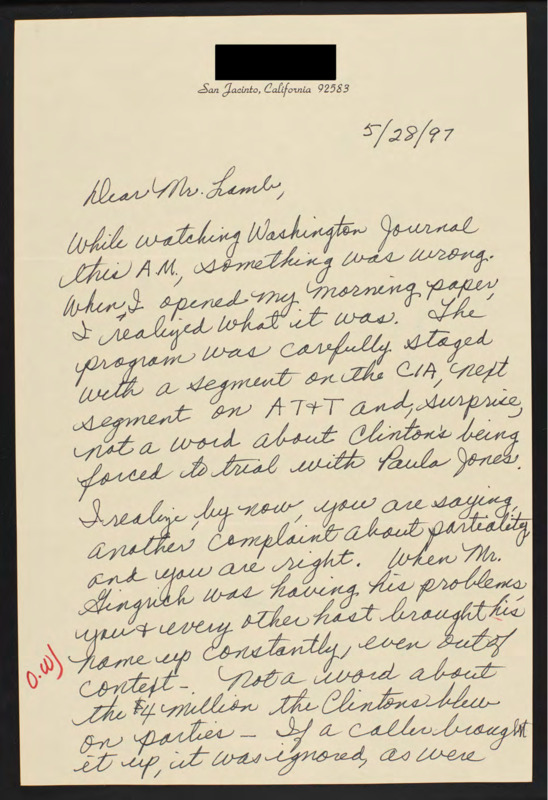 San Jacinto, California 92583
5/28/97
Dear Mr. Lamb,
While watching Washington Journal
this A.M., something was wrong.
When I opened my morning paper,
I realized what it was. The
program was carefully staged
with a segment on the CIA, next
segment on AT&T and, surprise,
not a word about Clinton's being
forced to trial with Paula Jones.
I realize, by now, you are saying,
another complaint about partiality
and you are right. When Mr.
Gingrich was having his problems,
you & every other host brought his
name up constantly, even out of
context-. Not a word about
the $4 million the Clintons blew
on parties - If a caller brought
it up, it was ignored, as were
O.W